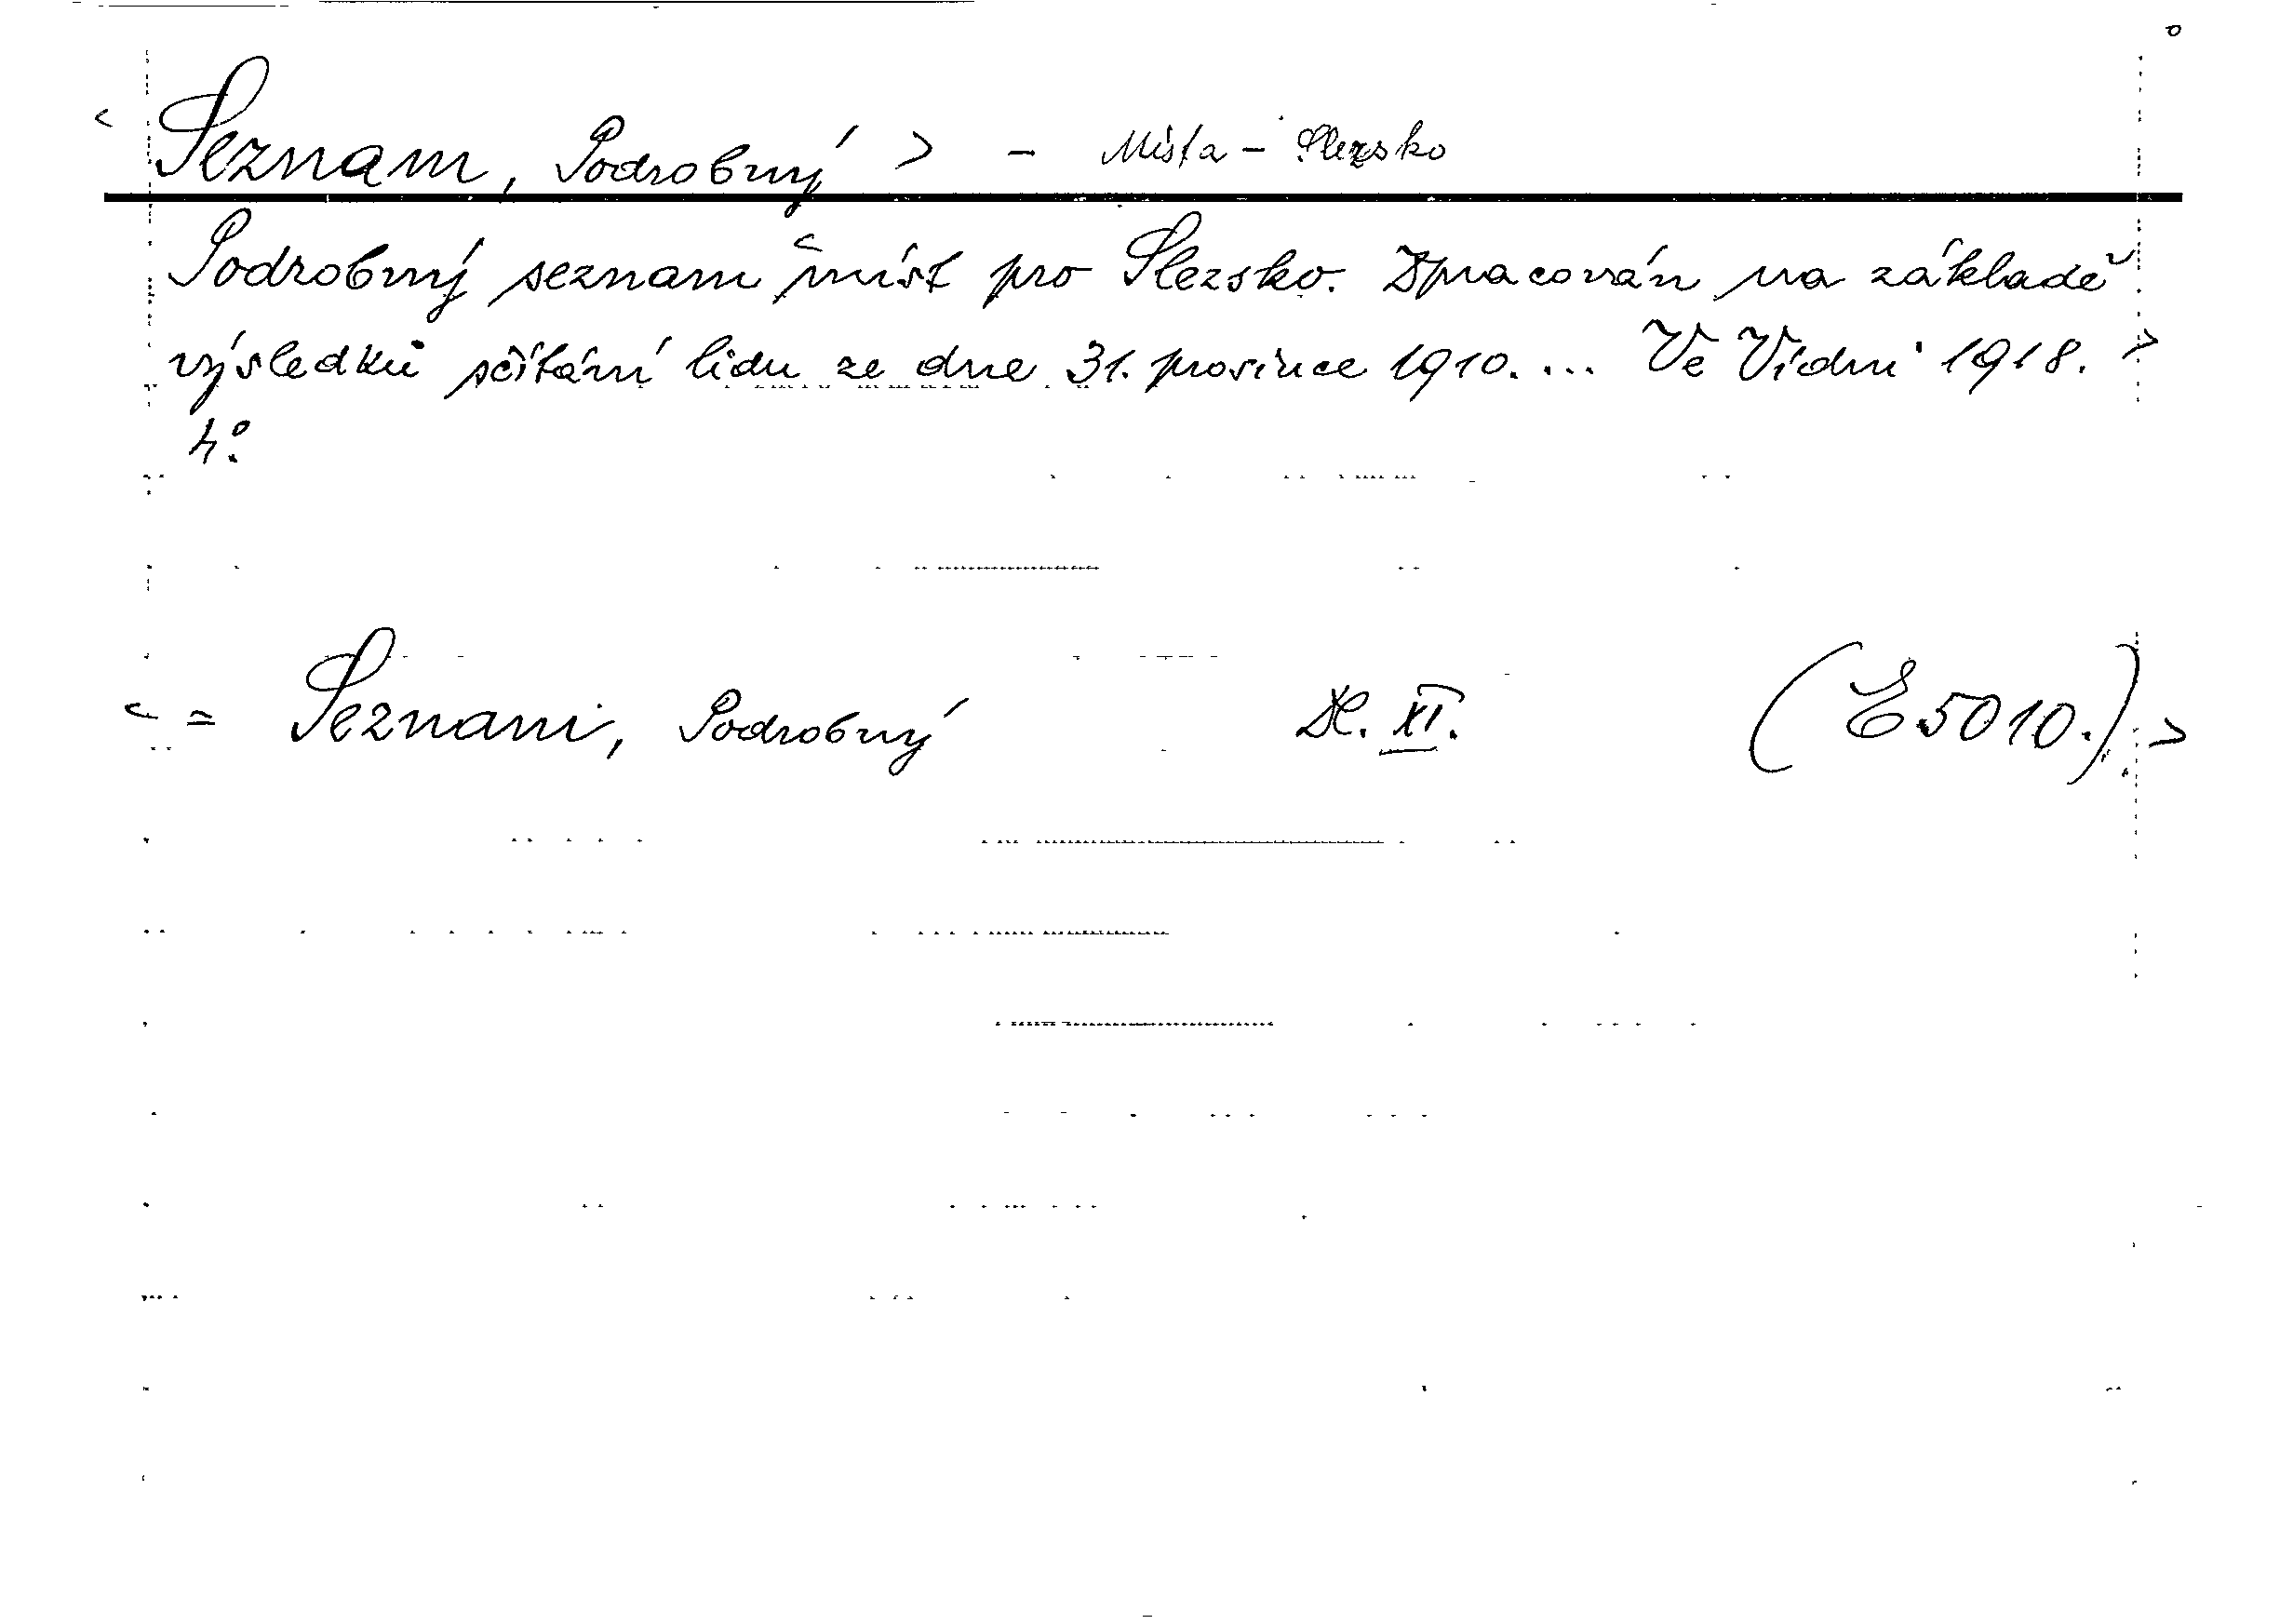 < Seznam, Podrobný > - Místa - Slezsko
Podrobný seznam < míst pro Slezsko. Zpracován na základě
výsledků sčítání lidu ze dne 31. prosince 1910. ... Ve Vídni 1918. >
4°.
< = Seznam, Podrobný Dl. XI. (E 5010.) >